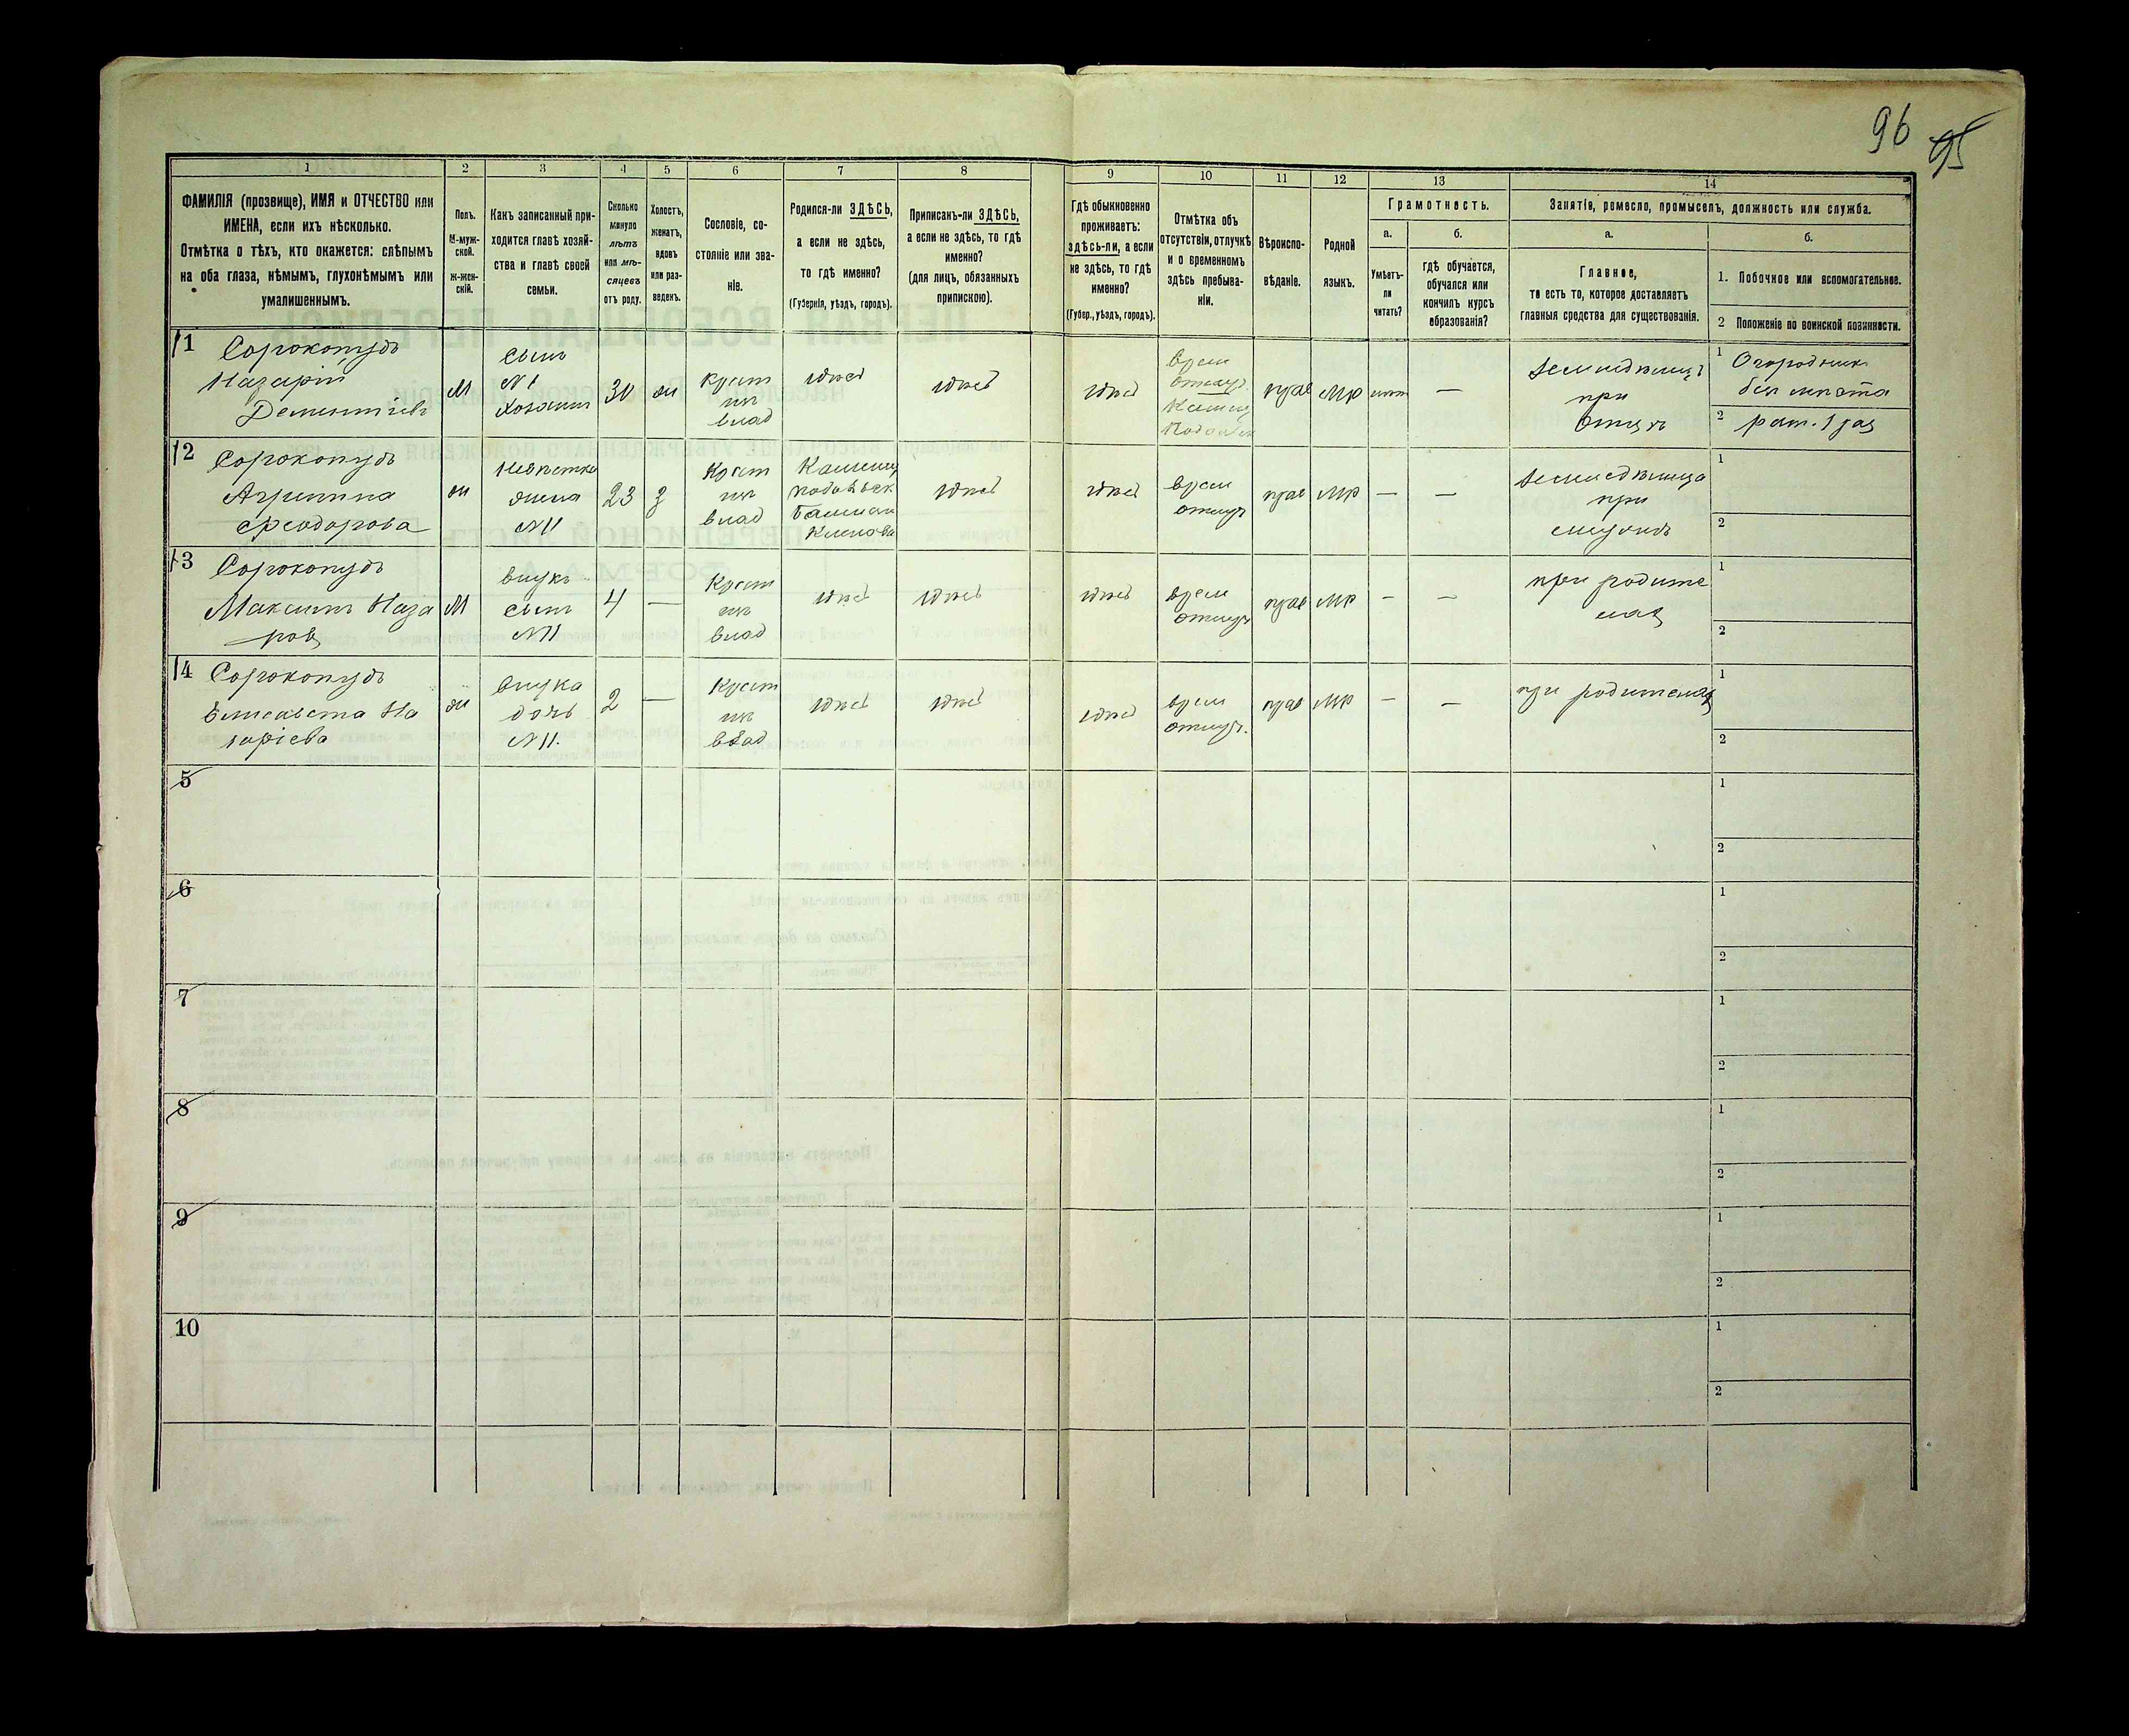 96 95
1 2 3 4 5 6 7 8 9 10 11 12 13 14
ФАМИЛІЯ (прозвище), ИМЯ и ОТЧЕСТВО или
ИМЕНА, если ихъ нѣсколько.
Отмѣтка о тѣхъ, кто окажется: слѣпымъ
на оба глаза, нѣмымъ, глухонѣмымъ или
умалишеннымъ.
Полъ.
М-муж-
ской.
ж-жен-
скій.
Какъ записанный при-
ходится главѣ хозяй-
ства и главѣ своей
семьи.
Сколько
минуло
лѣтъ
или мѣ-
сяцевъ
отъ роду.
Холостъ,
женатъ,
вдовъ
или раз-
веденъ.
Сословіе, со-
стояніе или зва-
ніе.
Родился-ли ЗДѢСЬ,
а если не здѣсь,
то гдѣ именно?
(Губернія, уѣздъ, городъ).
Приписанъ-ли ЗДѢСЬ,
а если не здѣсь, то гдѣ
именно?
(для лицъ, обязанныхъ
припискою).
Гдѣ обыкновенно
проживаетъ:
здѣсь-ли, а если
не здѣсь, то гдѣ
именно?
(Губер., уѣздъ, городъ).
Отмѣтка объ
отсутствіи, отлучкѣ
и о временномъ
здѣсь пребыва-
ніи.
Вѣроиспо-
вѣданіе.
Родной
языкъ.
Грамотность.
а.
Умѣетъ-
ли
читать?
б.
гдѣ обучается,
обучался или
кончилъ курсъ
образованія?
Занятіе, ремесло, промыселъ, должность или служба.
а.
Главное,
то есть то, которое доставляетъ
главныя средства для существованія.
б.
1. Побочное или вспомогательное.
2 Положеніе по воинской повинности.
11 Сорокопудъ
Назарій
Дементіевъ
М
сынъ
N1
хозяинъ
30
ж
крест
из
влад
здѣсь
здѣсь
здѣсь
врем
отлуч.
прав
мр
нѣтъ
—
при
отцѣ
1 Огородник
2 рат. 1 раз
12 Сорокопудъ
Агрипина
Феодорова
ж
невѣстка
жена
N11
23
з
Крест
из
влад
здѣсь
здѣсь
врем
отлуч
прав
мр
—
—
при
1
2
13 Сорокопудъ
Максимъ Наза
ров
М
внукъ
сынъ
N11
4
—
Крест
из
влад
здѣсь
здѣсь
здѣсь
врем
отлуч
прав
мр
—
—
при родите
лях
1
2
14 Сорокопудъ
Елисавета На
заріева
ж
внука
дочь
N11.
2
—
Крест
из
влад
здѣсь
здѣсь
здѣсь
врем
отлуч.
прав
мр
—
—
при родителях
1
2
5
1
2
6
1
2
7
1
2
8
1
2
9
1
2
10
1
2